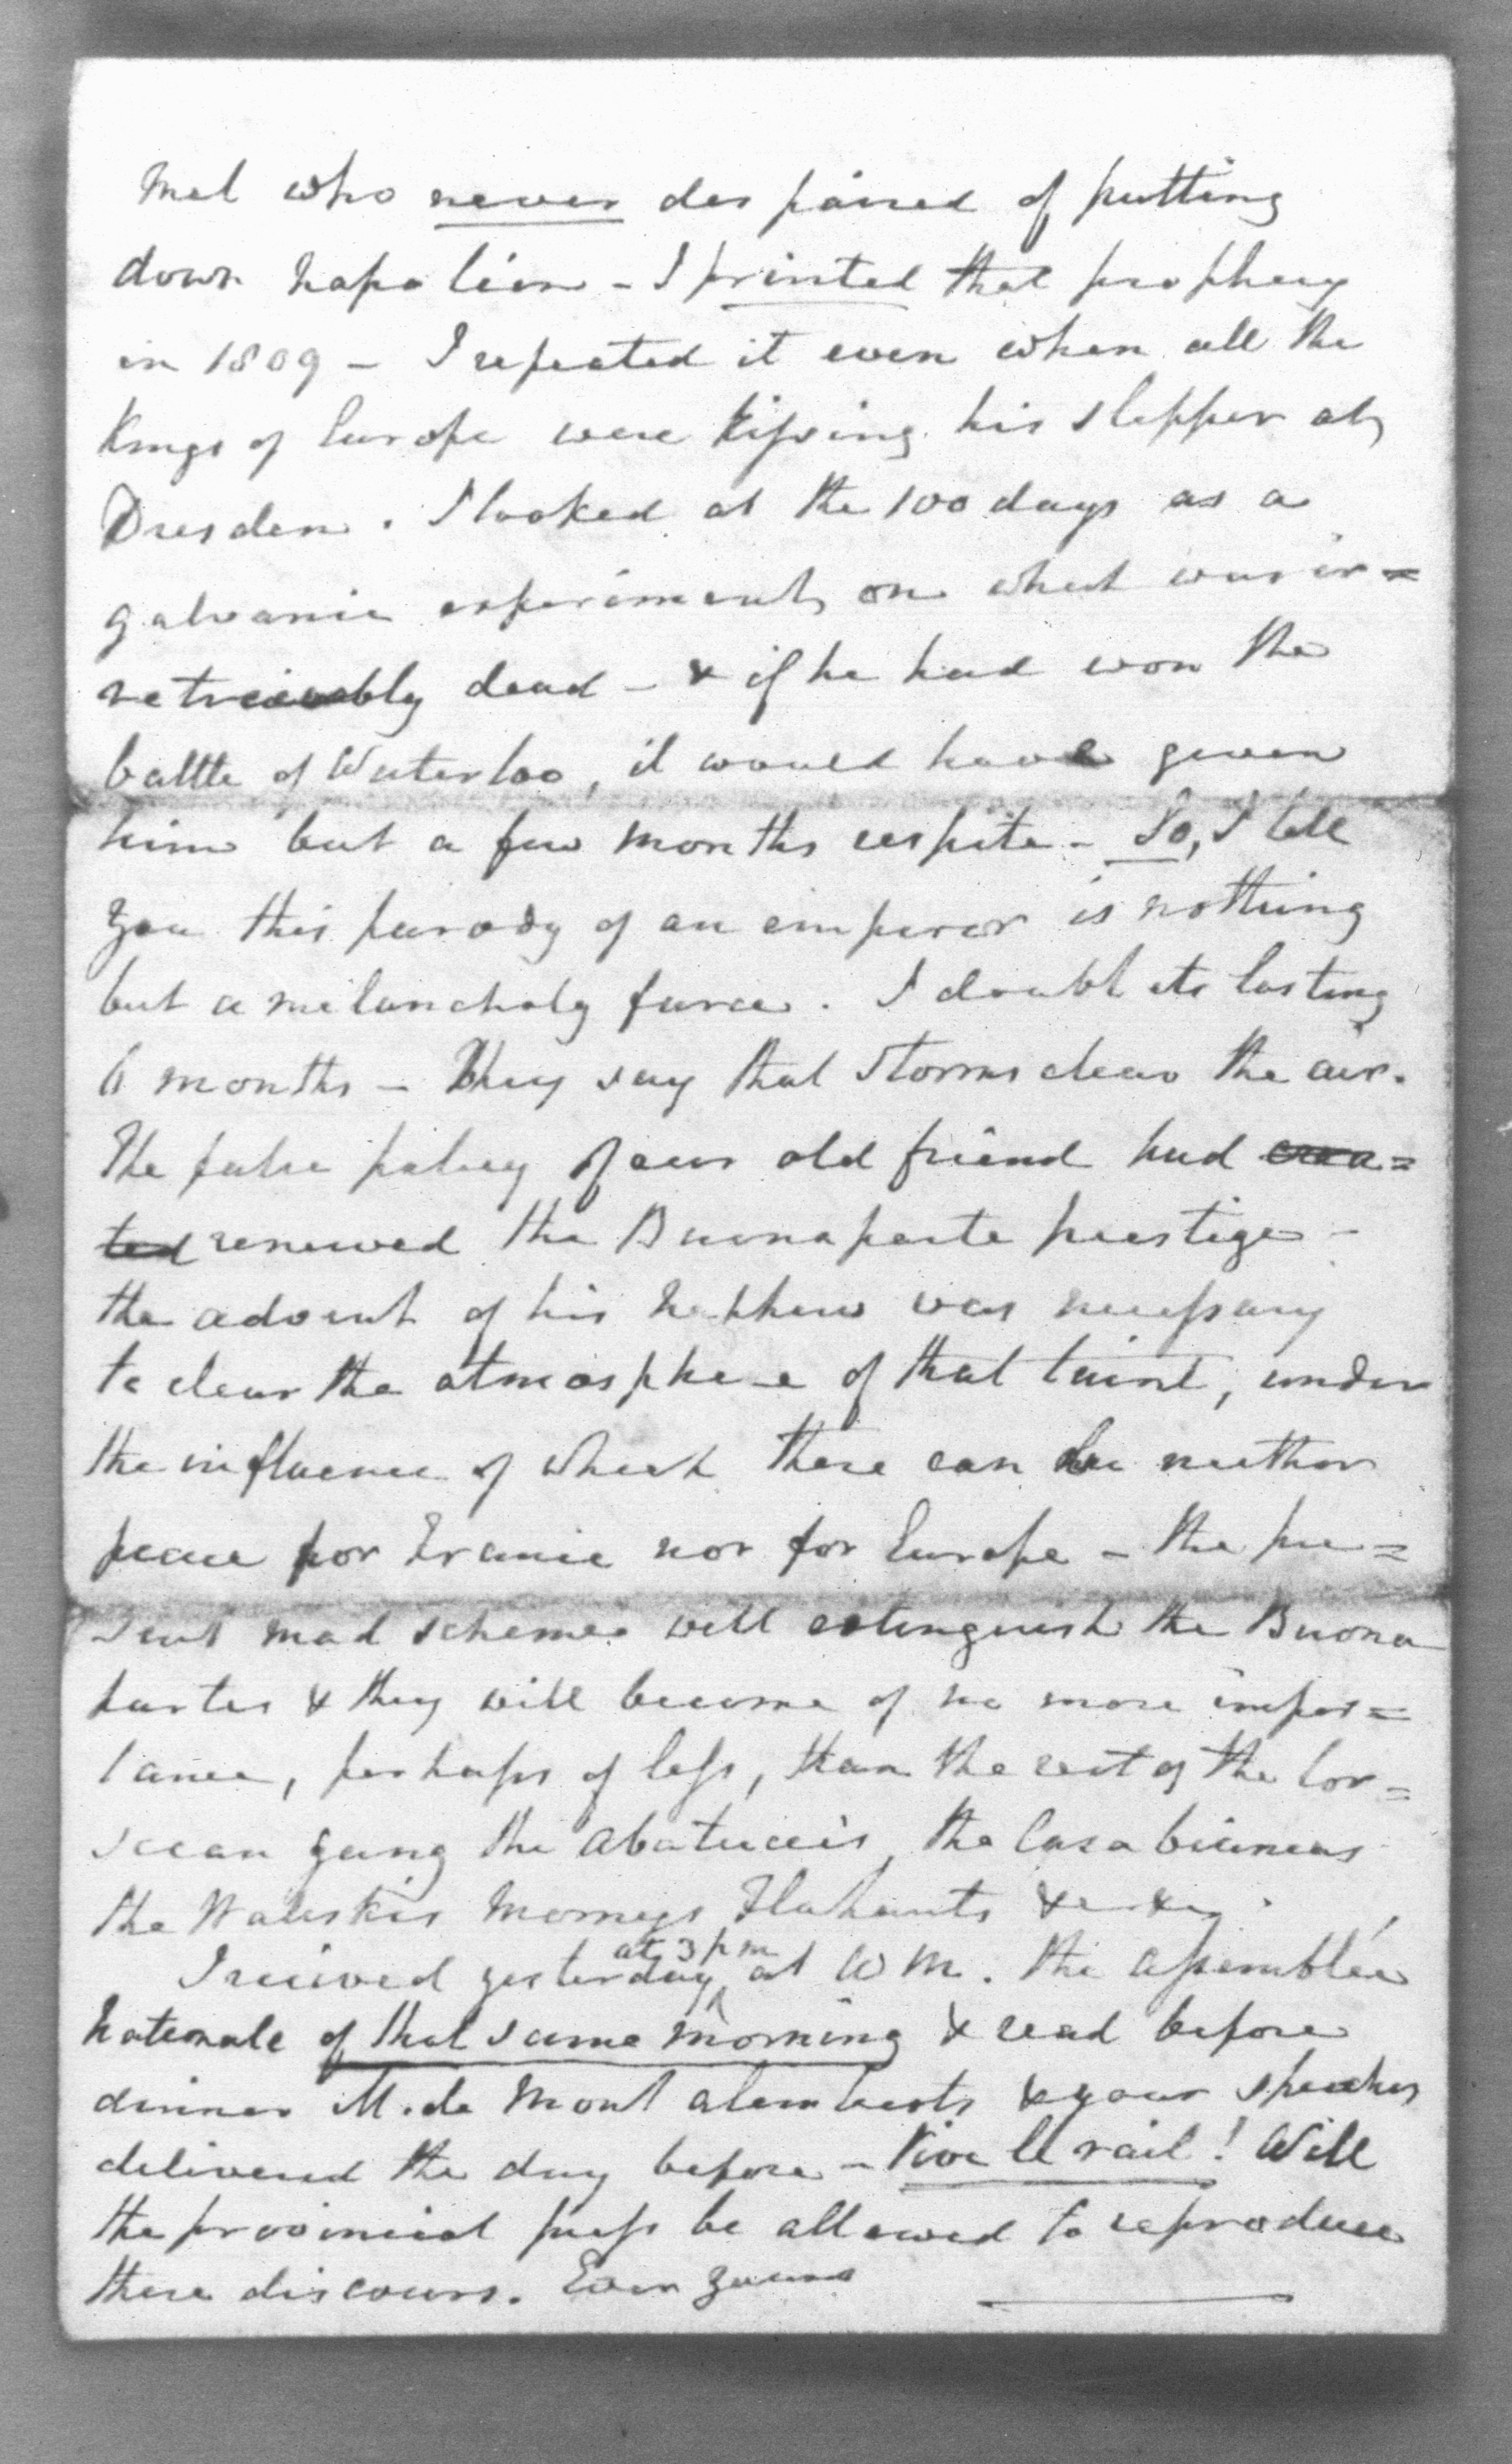 met who never despaired of putting
down Napoleon - I printed that prophecy
in 1809 - I repeated it even when all the
Kings of Europe were kissing his slipper at
Dresden. I looked at the 100 days as a
galvanic experiment on what was ir=
retrievably dead - & if he had won the
battle of Waterloo, it would have given
him but a few months respite - So, I tell
you this parody of an emperor is nothing
but a melancholy farce. I doubt its lasting
6 months - They say that storms clear the air.
The false policy of our old friend had crea=
ted renewed the Buonaparte prestige -
the advent of his nephew was necessary
to clear the atmosphere of that taint, under
the influence of which there can be neither
peace for France nor for Europe - the pre=
sent mad scheme will extinguish the Buona
partes & they will become of no more impor=
tance, perhaps of less, than the rest of the Cor=
sican gang the Abatuccis, the Casabiancas
the Waleskis Mornys Flahauts &c &c.
I received yesterday at 3 pm at W M. the Assemblée
Nationale of that same morning & read before
dinner M. de Montalemberts & your speeches
delivered the day before - Vive le rail! Will
the provincial press be allowed to reproduce
these discours. Ever yours